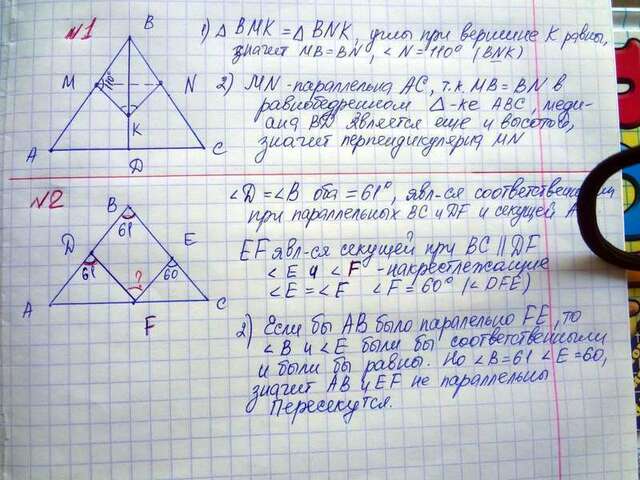 №1
B
M
110°
N
K
A
D
C
1) △ BMK = △ BNK, углы при вершине K равны,
значит MB = BN, ∠N = 110° (BNK)
2) MN - параллельна AC, т.к. MB = BN в
равнобедренном △-ке ABC, меди-
ана BD является еще и высотой,
значит перпендикулярна MN
№2
B
61
D
61
E
60
?
A
F
C
∠D = ∠B оба = 61°, явл-ся соответственными
при параллельных BC и DF и секущей A
EF явл-ся секущей при BC ∥ DF
∠E и ∠F - накрестлежащие
∠E = ∠F ∠F = 60° (∠DFE)
2) Если бы AB было паралельно FE, то
∠B и ∠E были бы соответственными
и были бы равны. Но ∠B = 61 ∠E = 60,
значит AB и EF не параллельны
Пересекутся.